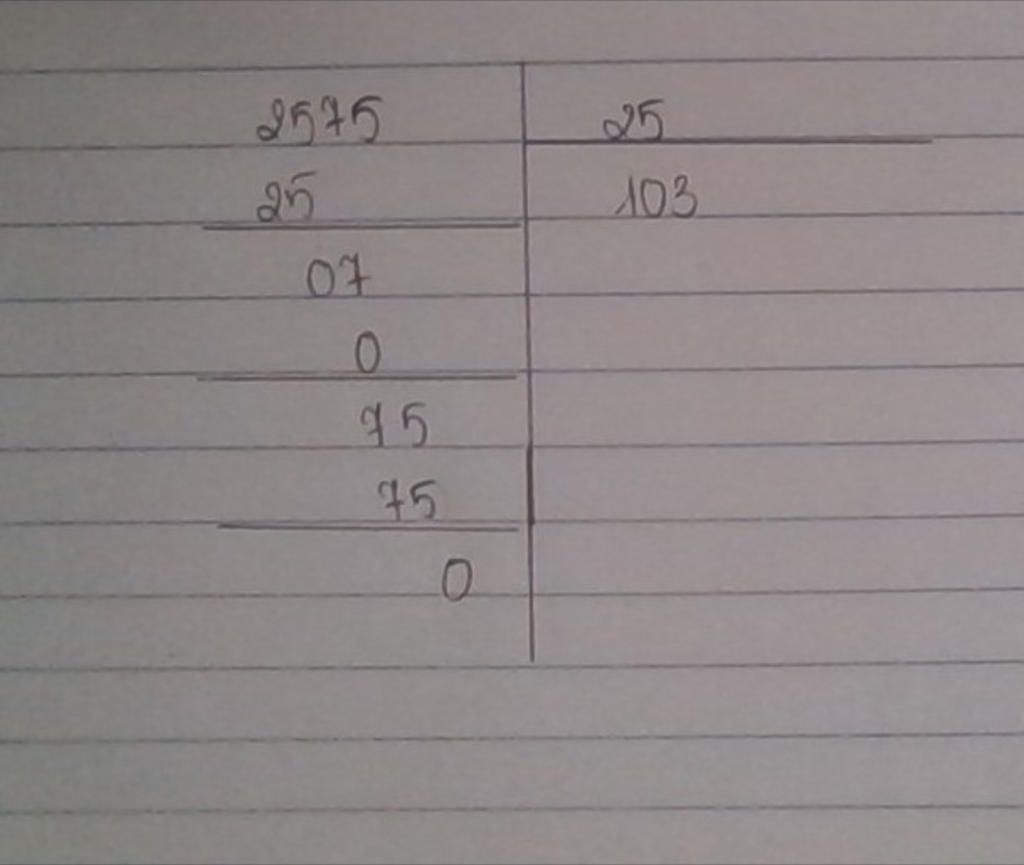 2575 25
25 103
07
0
75
75
0